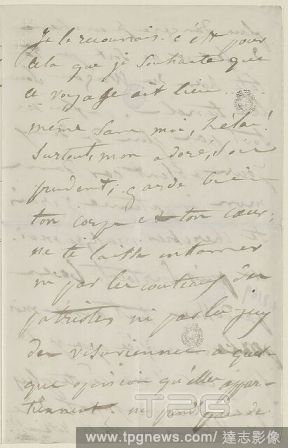 Je le reconnais. c'est pour
cela que je souhaite que
ce voyage ait lieu
même sans moi, hélas!
Surtout, mon adoré, sois
prudent, garde bien
ton corps et ton cœur;
ne te laisse entamer
ni par les couteaux des
patriotes ni par les yeux
des visoriennes à quel-
que opinion qu'elles appar-
tiennent. ne de
TPG
www.tpgnews.com / 達志影像